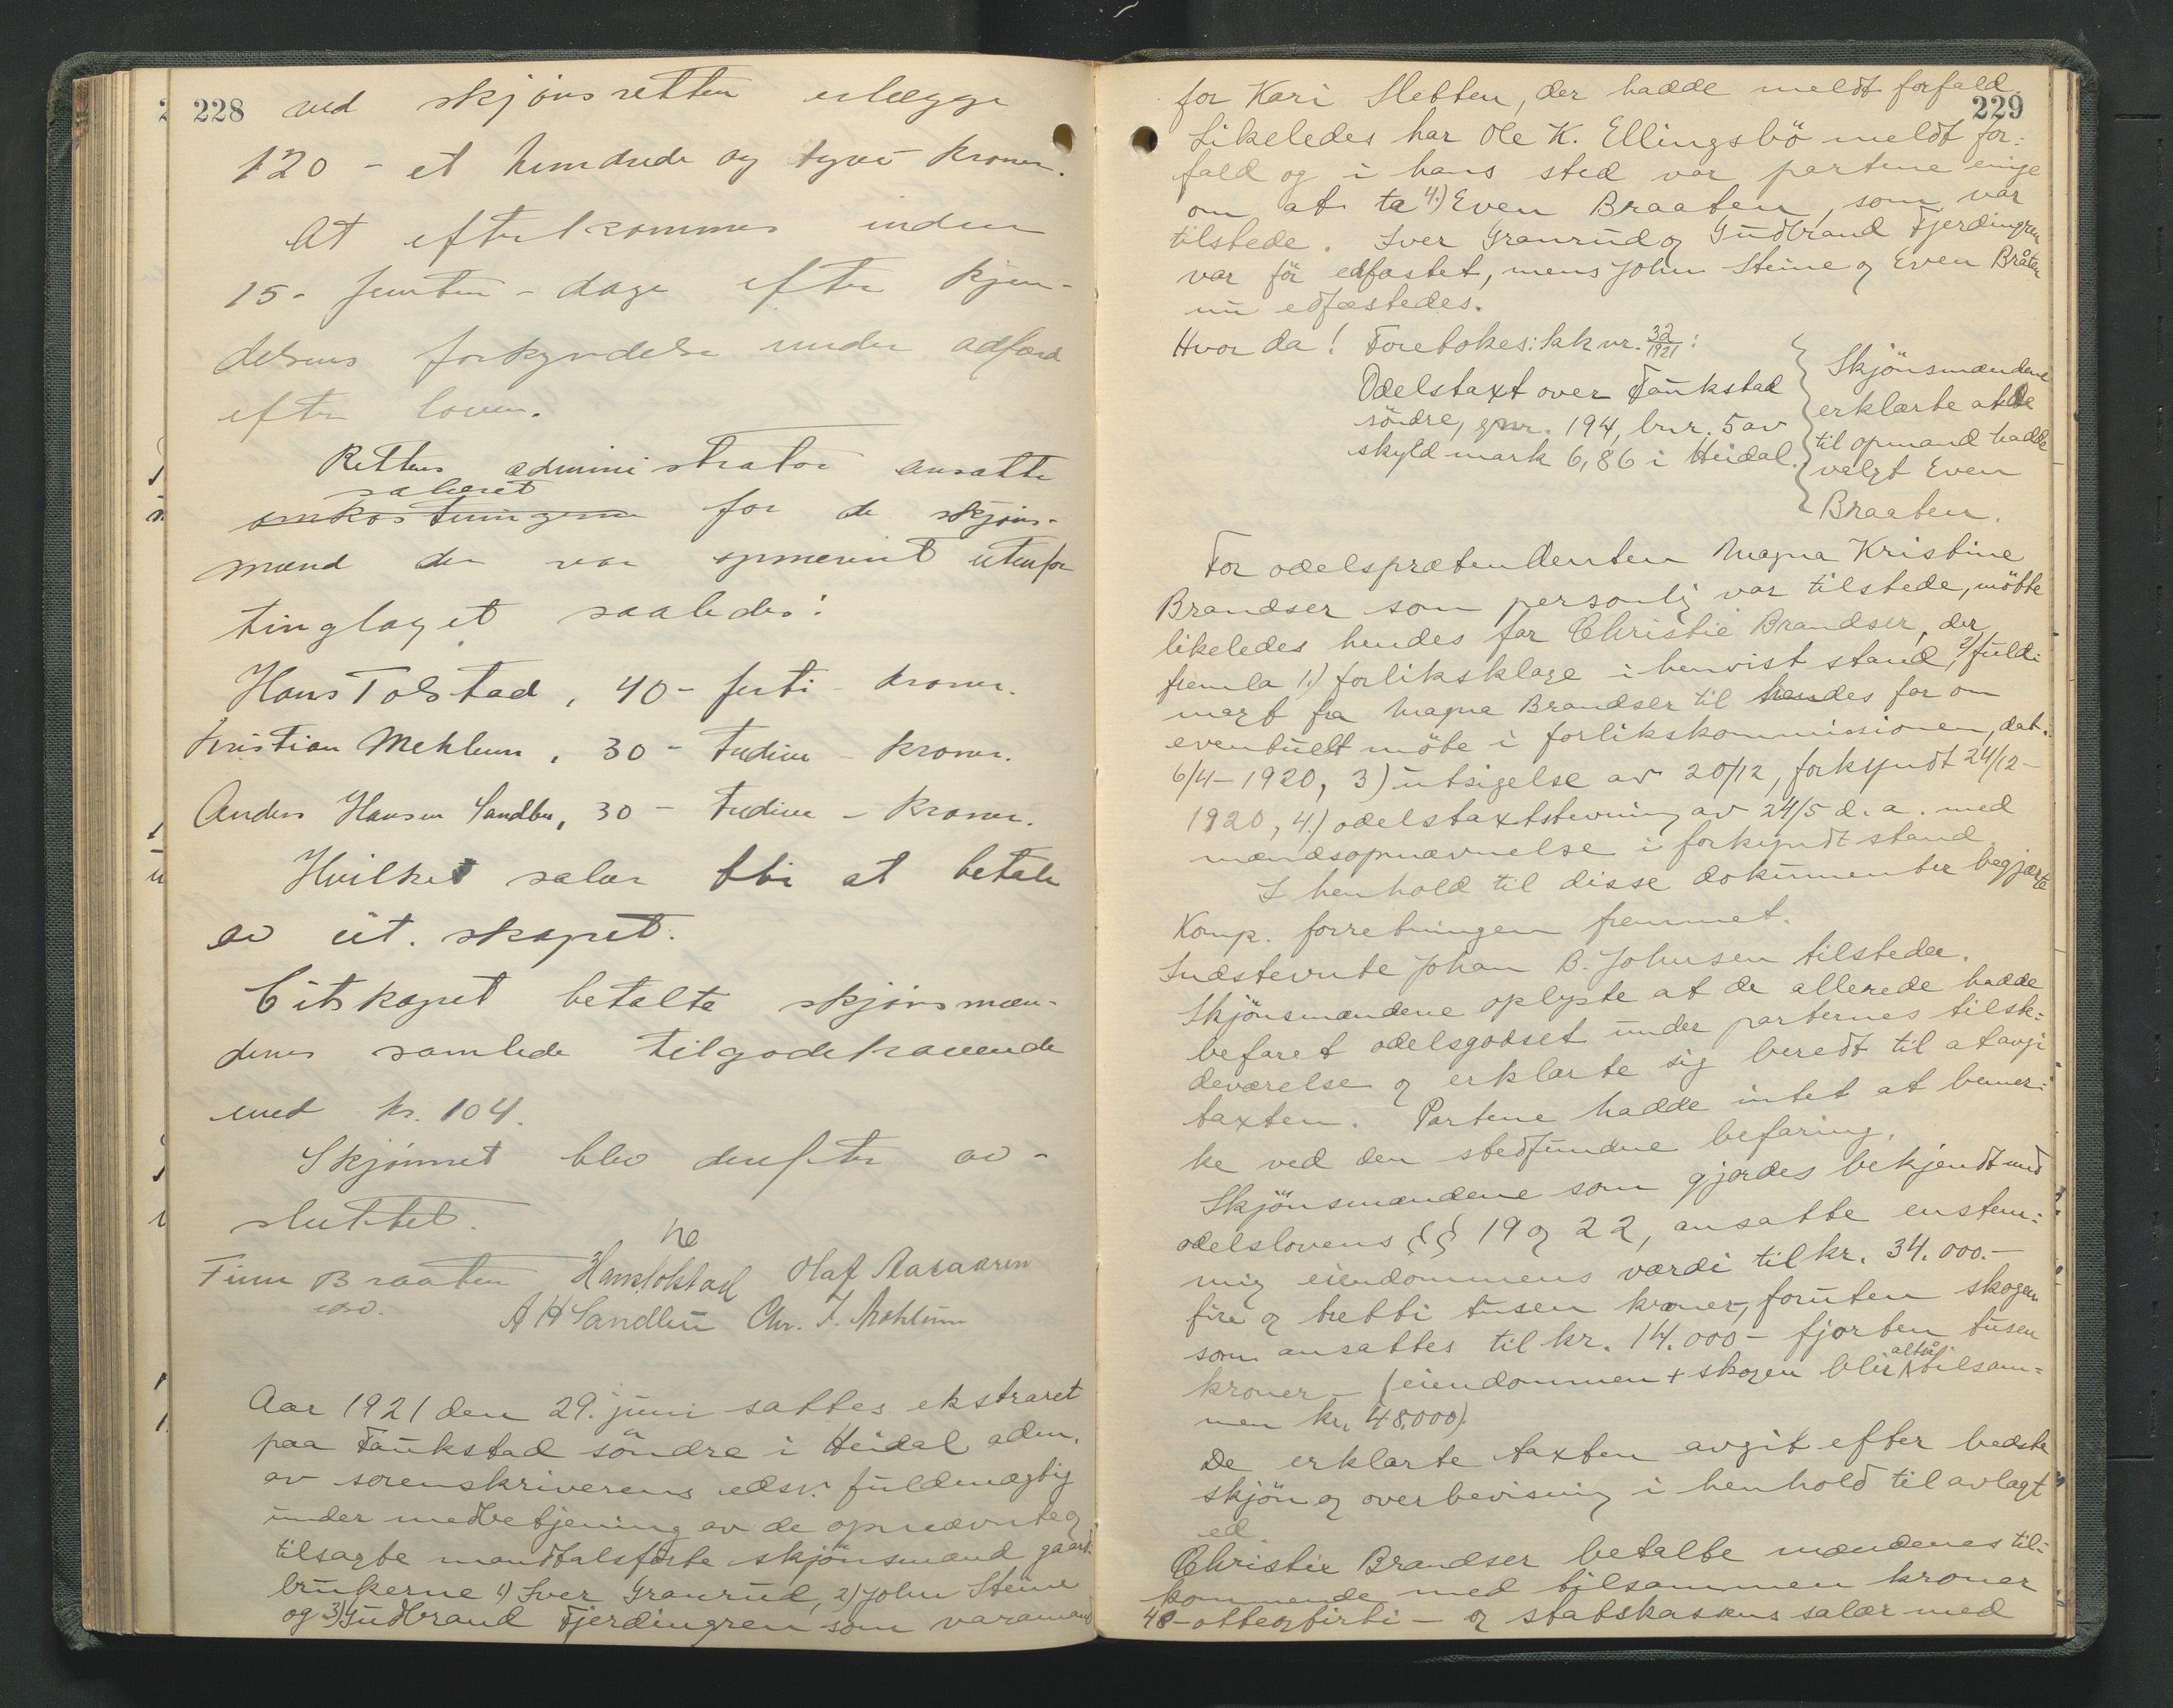 228 ved skjønsretten erlægge
120 - et hundrede og tyve - kroner.
At efterkommes inden
15 - femten - dage efter kjen-
delsens forkyndelse under adfærd
efter loven.
Rettens administrator ansatte
salæret
omkostningerne for de skjøns-
mænd der var opnævnt utenfor
tinglaget saaledes:
Hans Tolstad, 40 - firti - kroner.
Kristian Mehlum, 30 - tredive - kroner.
Anders Hansen Sandbu, 30 - tredive - kroner.
Hvilket salær blir at betale
av ut. skapet.
Citskapet betalte skjønsmæn-
denes samlede tilgodehavende
med kr. 104.
Skjønnet blev derefter av-
sluttet.
Finn Braaten Hans Tolstad Olaf Aasaaren
edsv.
A H Sandbu Chr. F. Mehlum
Aar 1921 den 29. juni sattes ekstraret
paa Taukstad söndre i Heidal adm.
av sorenskriverens edsv. fuldmægtig
under medbetjening av de opnævnte og
tilsagte mandtalsførte skjönsmænd gaard-
brukerne 1) Iver Granrud, 2) John Steine
og 3) Gudbrand Fjerdingren som varamand
229
for Kari Sletten, der hadde meldt forfald.
Likeledes har Ole K. Ellingsbö meldt for:
fald og i hans sted var partene enige
om at ta 4.) Even Braaten, som var
tilstede. Iver Granrud og Gudbrand Fjerdingren
var för edfæstet, mens John Steine og Even Bråten
nu edfæstedes.
Hvor da! Foretokes: Sak nr. 32/1921:
Odelstaxt over Taukstad
söndre, gnr. 194, bnr. 5 av
skyld mark 6,86 i Heidal.
Skjönsmændene
erklærte at de
til opmand hadde
valgt Even
Braaten.
For odelsprætendenten Magna Kristine
Brandser som personlig var tilstede, mötte
likeledes hendes far Christie Brandser, der
fremla 1.) forliksklage i henvist stand, 2) fuld:
magt fra Magna Brandser til hendes far om
eventuelt möte i forlikskommissionen, dat.
6/4-1920, 3) utsigelse av 20/12, forkyndt 24/12-
1920, 4.) odelstaxtstevning av 24/5 d. a. med
mændsopnævnelse i forkyndt stand
I henhold til disse dokumenter begjærte
Komp. forretningen fremmet.
Indstevnte Johan B. Johnsen tilstede.
Skjönsmændene oplyste at de allerede hadde
befaret odelsgodset under parternes tilste:
deværelse og erklærte sig beredt til at avgi
taxten. Partene hadde intet at bemer:
ke ved den stedfundne befaring.
Skjönsmændene som gjordes bekjendt med
odelslovens §§ 19 og 22, ansatte enstem:
mig eiendommens værdi til kr. 34.000.-
fire og tretti tusen kroner, foruten skogen
som ansattes til kr. 14.000 - fjorten tusen
kroner - (eiendommen + skogen blir altså tilsam=
men kr. 48.000).
De erklærte taxten avgit efter bedste
skjön og overbevisning i henhold til avlagt
ed.
Christie Brandser betalte mændenes til:
kommende med tilsammen kroner
48 - otteogfirti - og statskassens salær med